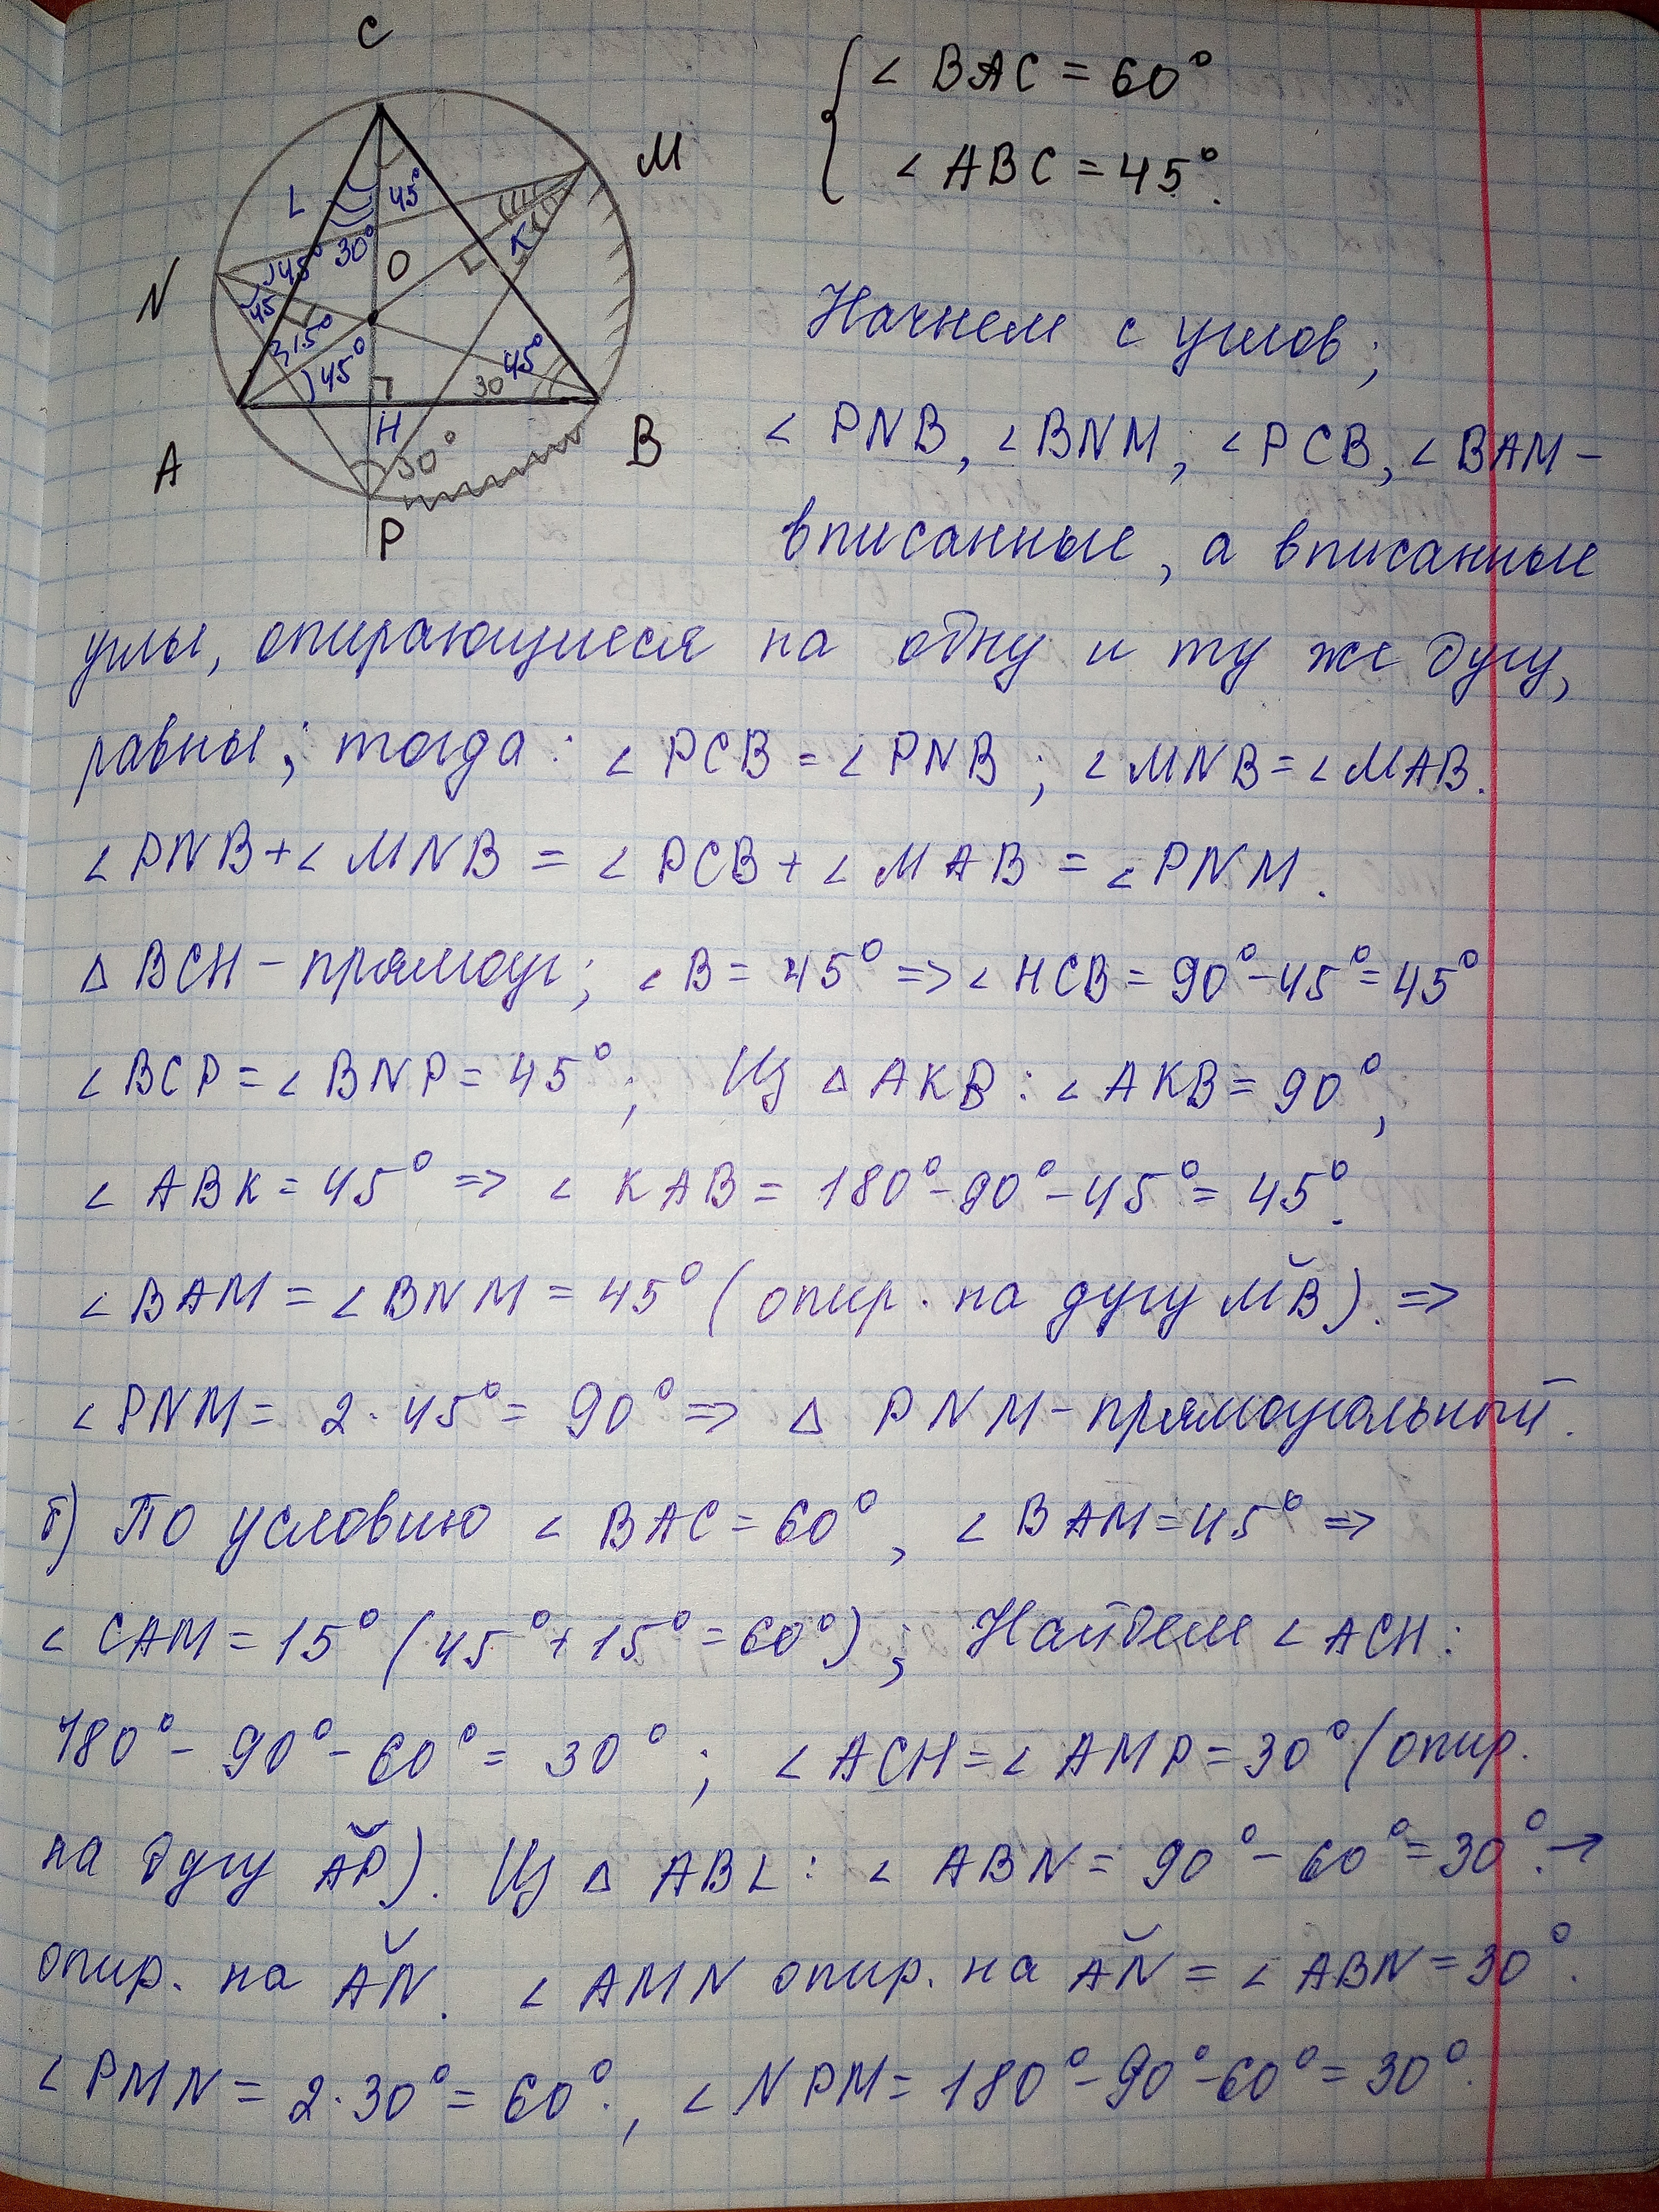 C
M
L
45°
30°
K
O
N
45°
45
15°
45°
45°
30
H
A
30°
B
P
∠ BAC = 60°
∠ ABC = 45°.
Начнем с углов;
∠ PNB, ∠BNM; ∠PCB, ∠BAM –
вписанные, а вписанные
углы, опирающиеся на одну и ту же дугу,
равны; тогда: ∠ PCB = ∠ PNB; ∠ MNB = ∠ MAB.
∠ PNB + ∠ MNB = ∠ PCB + ∠ MAB = ∠ PNM.
Δ BCH – прямоуг; ∠ B = 45° => ∠ HCB = 90° – 45° = 45°
∠ BCP = ∠ BNP = 45°; Из Δ AKB: ∠ AKB = 90°;
∠ ABK = 45° => ∠ KAB = 180° – 90° – 45° = 45°.
∠ BAM = ∠ BNM = 45° (опир. на дугу M̆B). =>
∠ PNM = 2 · 45° = 90° => Δ PNM – прямоугольный.
б) По условию ∠ BAC = 60°, ∠ BAM = 45° =>
∠ CAM = 15° (45° + 15° = 60°); Найдем ∠ ACH:
180° – 90° – 60° = 30°; ∠ ACH = ∠ AMP = 30° (опир.
на дугу ĂP). Из Δ ABL: ∠ ABN = 90° – 60° = 30°. →
опир. на ĂN. ∠ AMN опир. на ĂN = ∠ ABN = 30°.
∠ PMN = 2 · 30° = 60°., ∠ NPM = 180° – 90° – 60° = 30°.